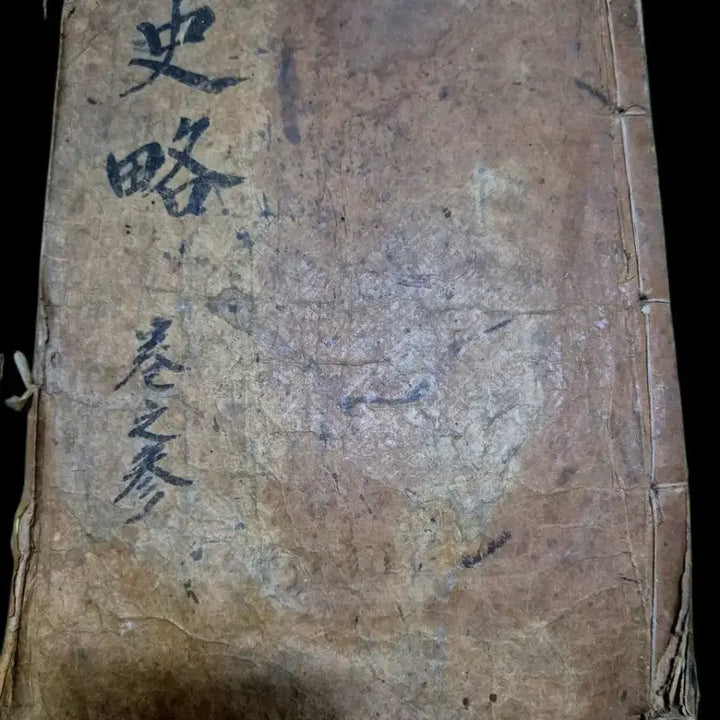 史略
卷之參